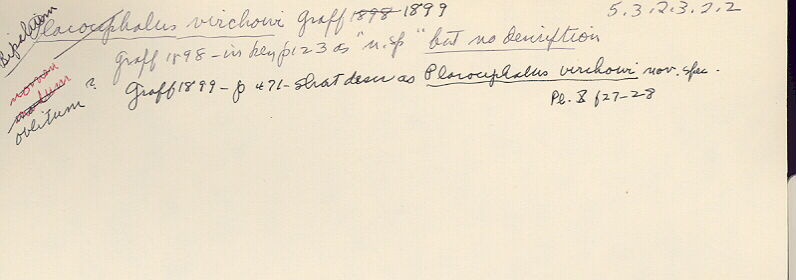 Bipalium
Placocephalus virchowi Graff 1898 1899
5.3.2.3.2.2
Graff 1898 - in key p 123 as "n.sp" but no description
nomen
nudum
oblitum ?
Graff 1899 - p 471 - short descr as Placocephalus virchowi nov. spec.
Pl. X f 27-28